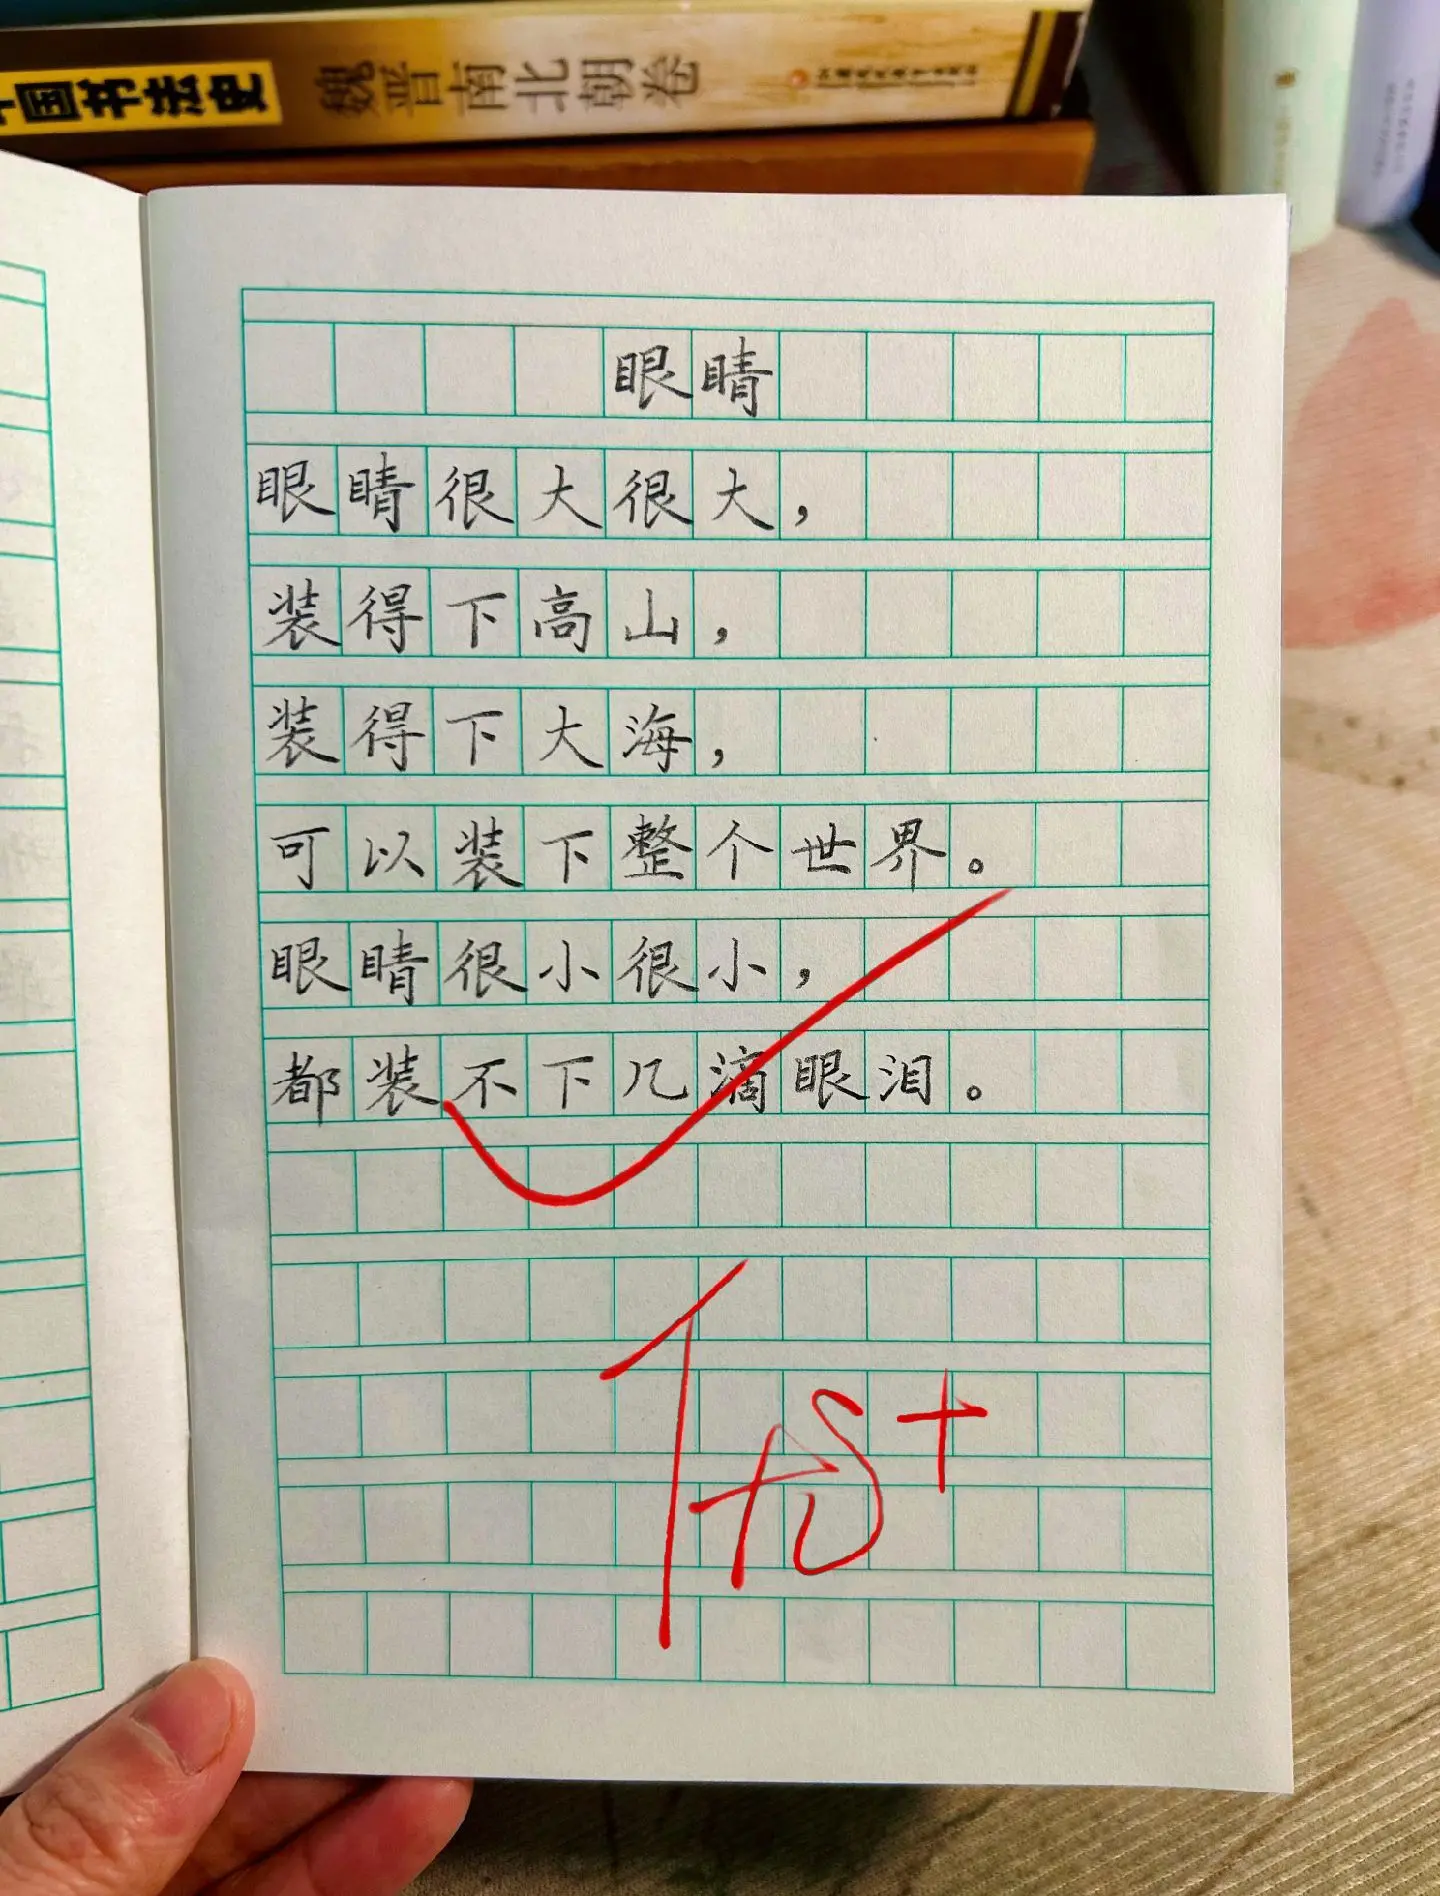 中国书法史 魏晋南北朝卷
眼睛
眼睛很大很大，
装得下高山，
装得下大海，
可以装下整个世界。
眼睛很小很小，
都装不下几滴眼泪。
优+